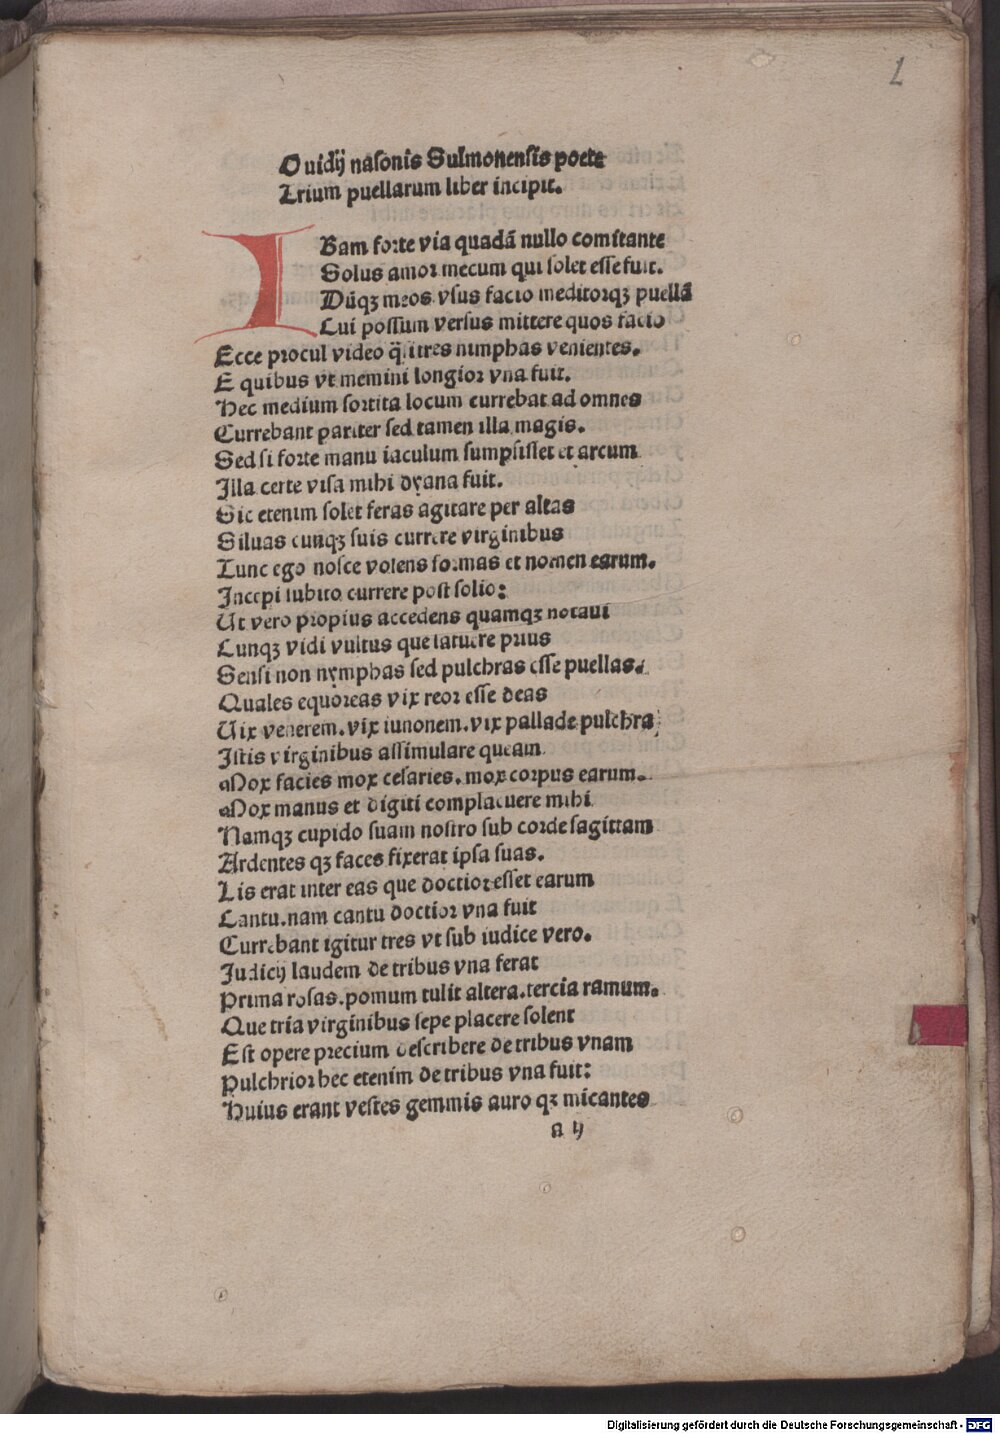 1
Ouidij nasonis Sulmonensis poete
Trium puellarum liber incipit.
IBam forte via quadã nullo comitante
Solus amor mecum qui solet esse fuit.
Dũqꝫ meos vsus facio meditorqꝫ puellã
Cui possum versus mittere quos facio
Ecce procul video tres nimphas venientes.
E quibus vt memini longior vna fuit.
Hec medium sortita locum currebat ad omnes
Currebant pariter sed tamen illa magis.
Sed si forte manu iaculum sumpsisset et arcum
Illa certe visa mihi dyana fuit.
Sic etenim solet feras agitare per altas
Siluas cunqꝫ suis currere virginibus
Tunc ego nosce volens formas et nomen earum.
Incepi subito currere post solio:
Ut vero propius accedens quamqꝫ notaui
Cunqꝫ vidi vultus que latuere prius
Sensi non nymphas sed pulchras esse puellas.
Quales equoreas vix reor esse deas
Uix venerem.vix iunonem.vix pallade pulchra
Istis virginibus assimulare queam
Mox facies mox cesaries.mox corpus earum.
Mox manus et digiti complacuere mihi
Namqꝫ cupido suam nostro sub corde sagittam
Ardentes qꝫ faces fixerat ipsa suas.
Lis erat inter eas que doctior esset earum
Cantu.nam cantu doctior vna fuit
Currebant igitur tres vt sub iudice vero.
Judicij laudem de tribus vna ferat
Prima rosas.pomum tulit altera.tercia ramum.
Que tria virginibus sepe placere solent
Est opere precium describere de tribus vnam
Pulchrior hec etenim de tribus vna fuit:
Huius erant vestes gemmis auro qꝫ micantes
a ij
Digitalisierung gefördert durch die Deutsche Forschungsgemeinschaft - DFG